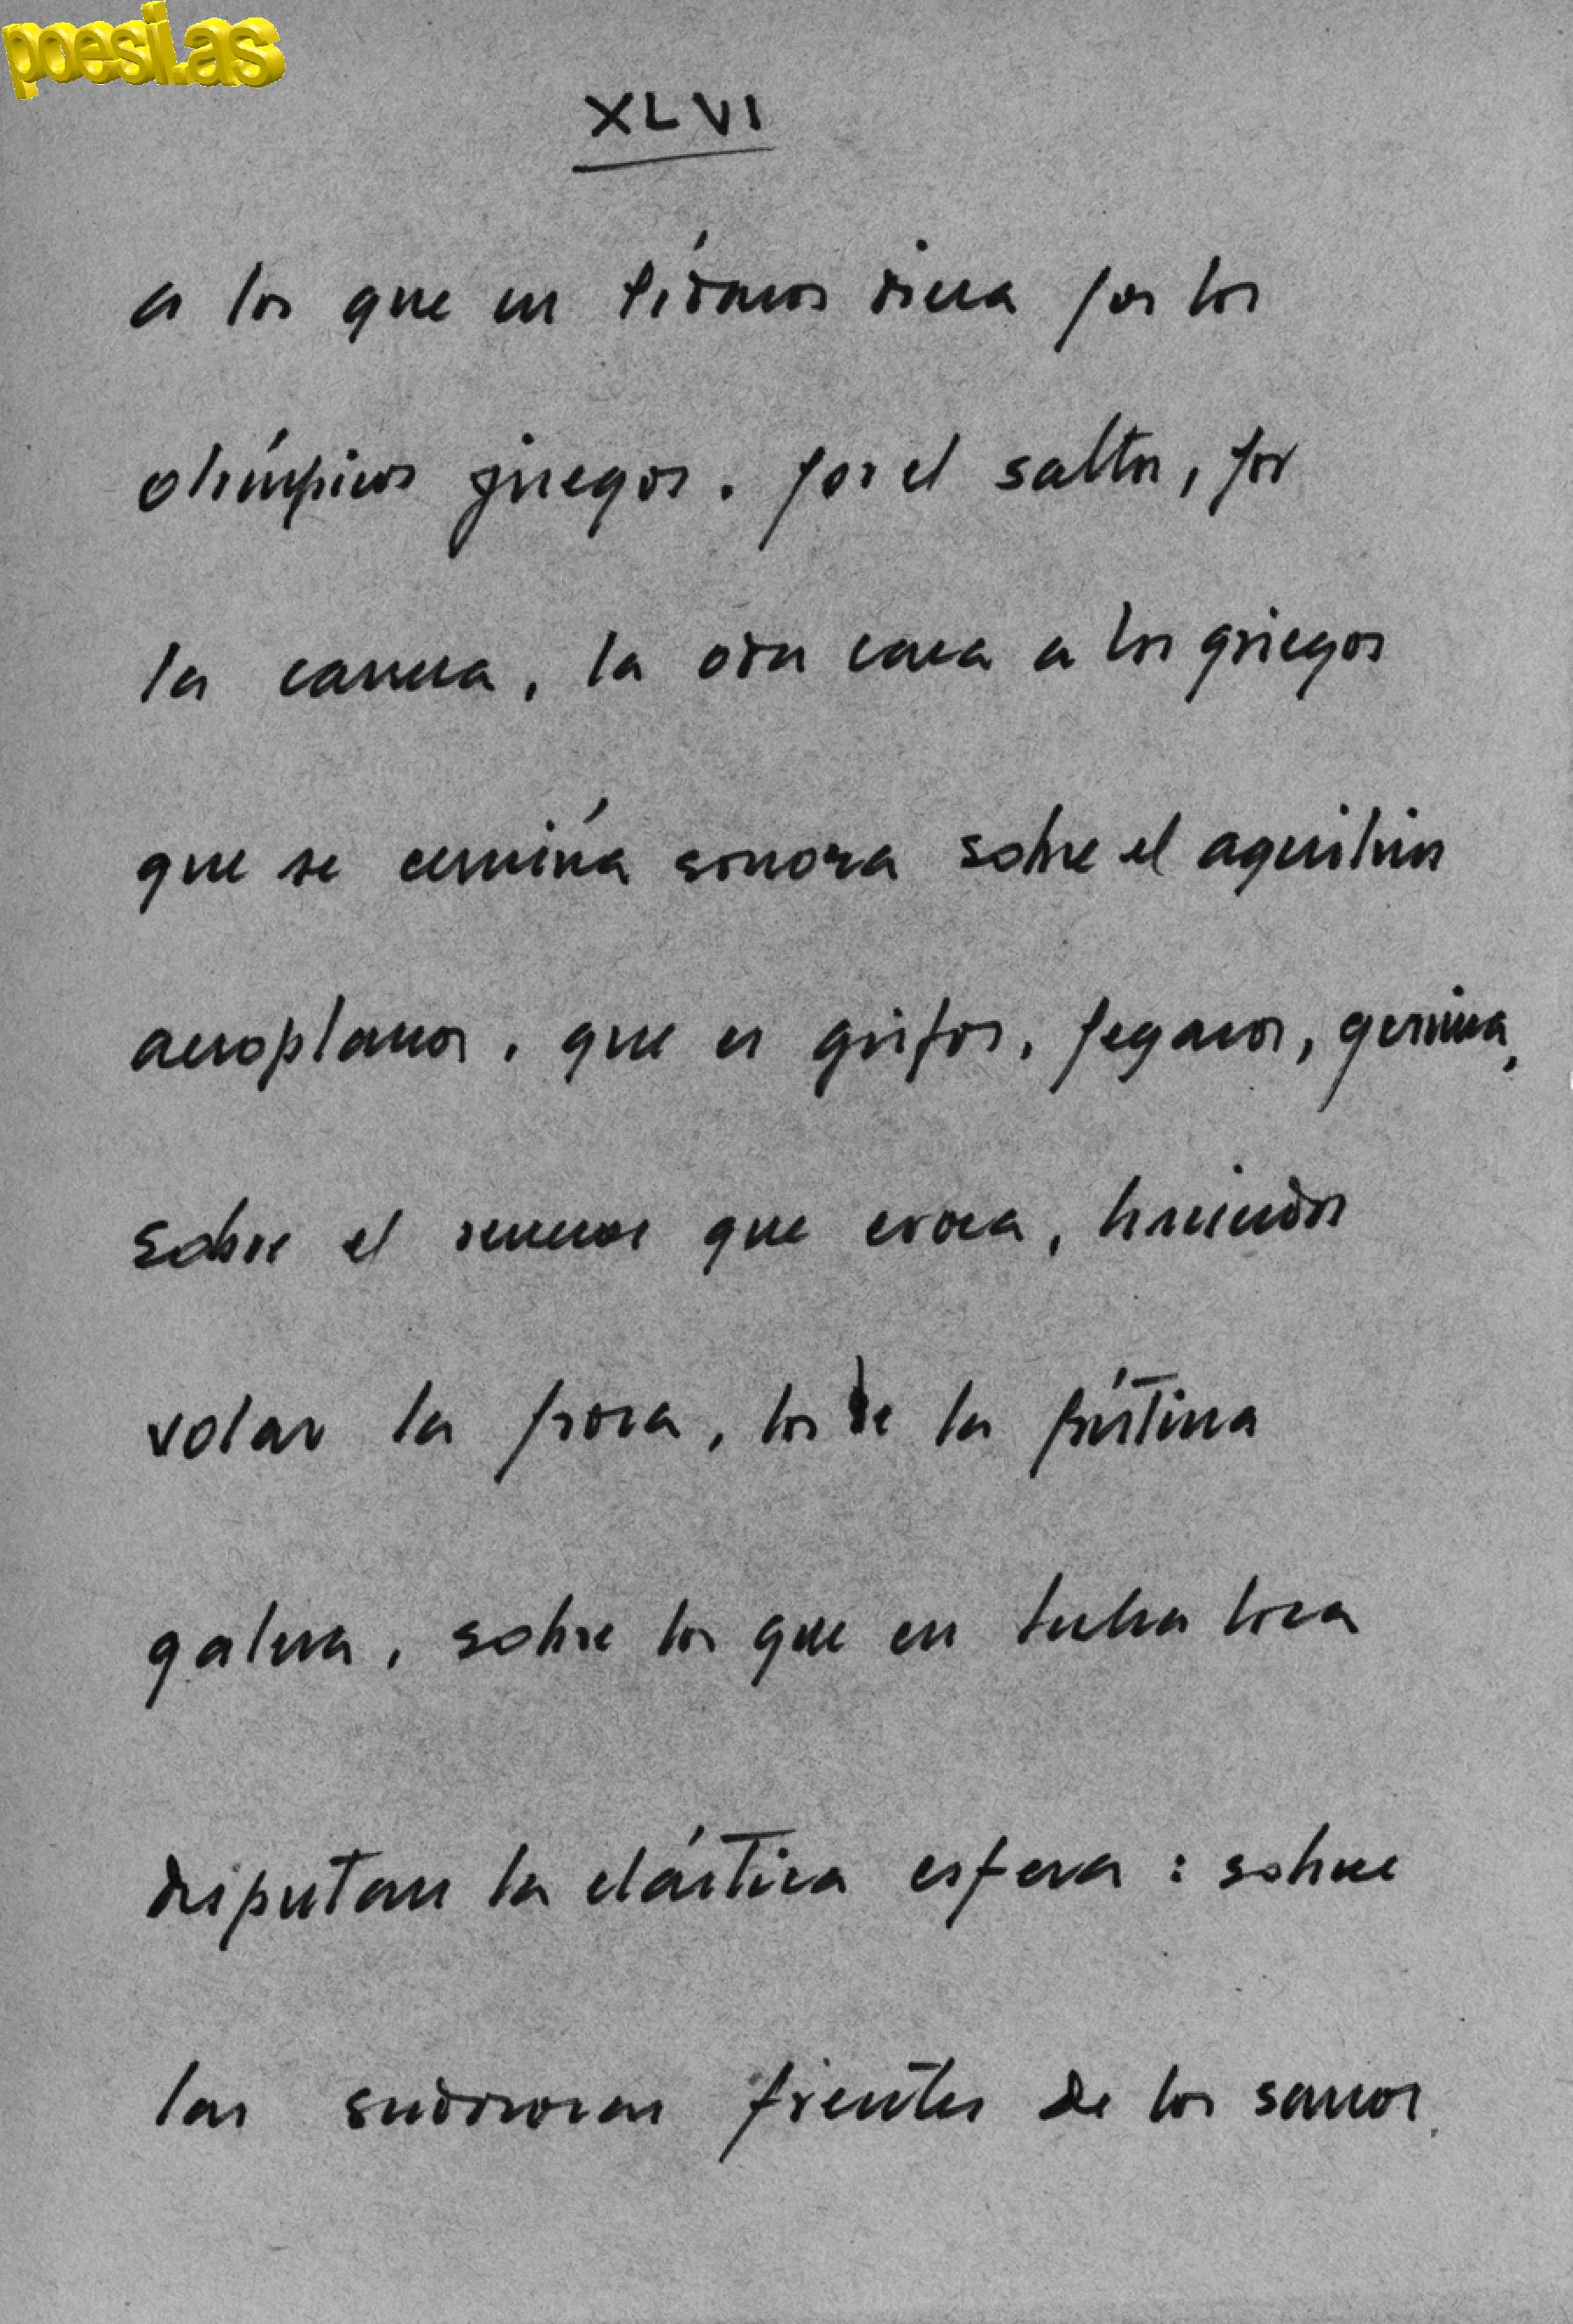 poesi.as
XLVI
a los que en Píndaros diera por los
olímpicos juegos, por el salto, por
la carrera, la oda cara a los griegos
que se cerniría sonora sobre el aquilino
aeroplano, que es grifo, pegaso, quimera,
sobre el remero que evoca, haciendo
volar la prora, los de la prístina
galera, sobre los que en lucha loca
disputan la elástica esfera: sobre
las sudorosas frentes de los sanos.